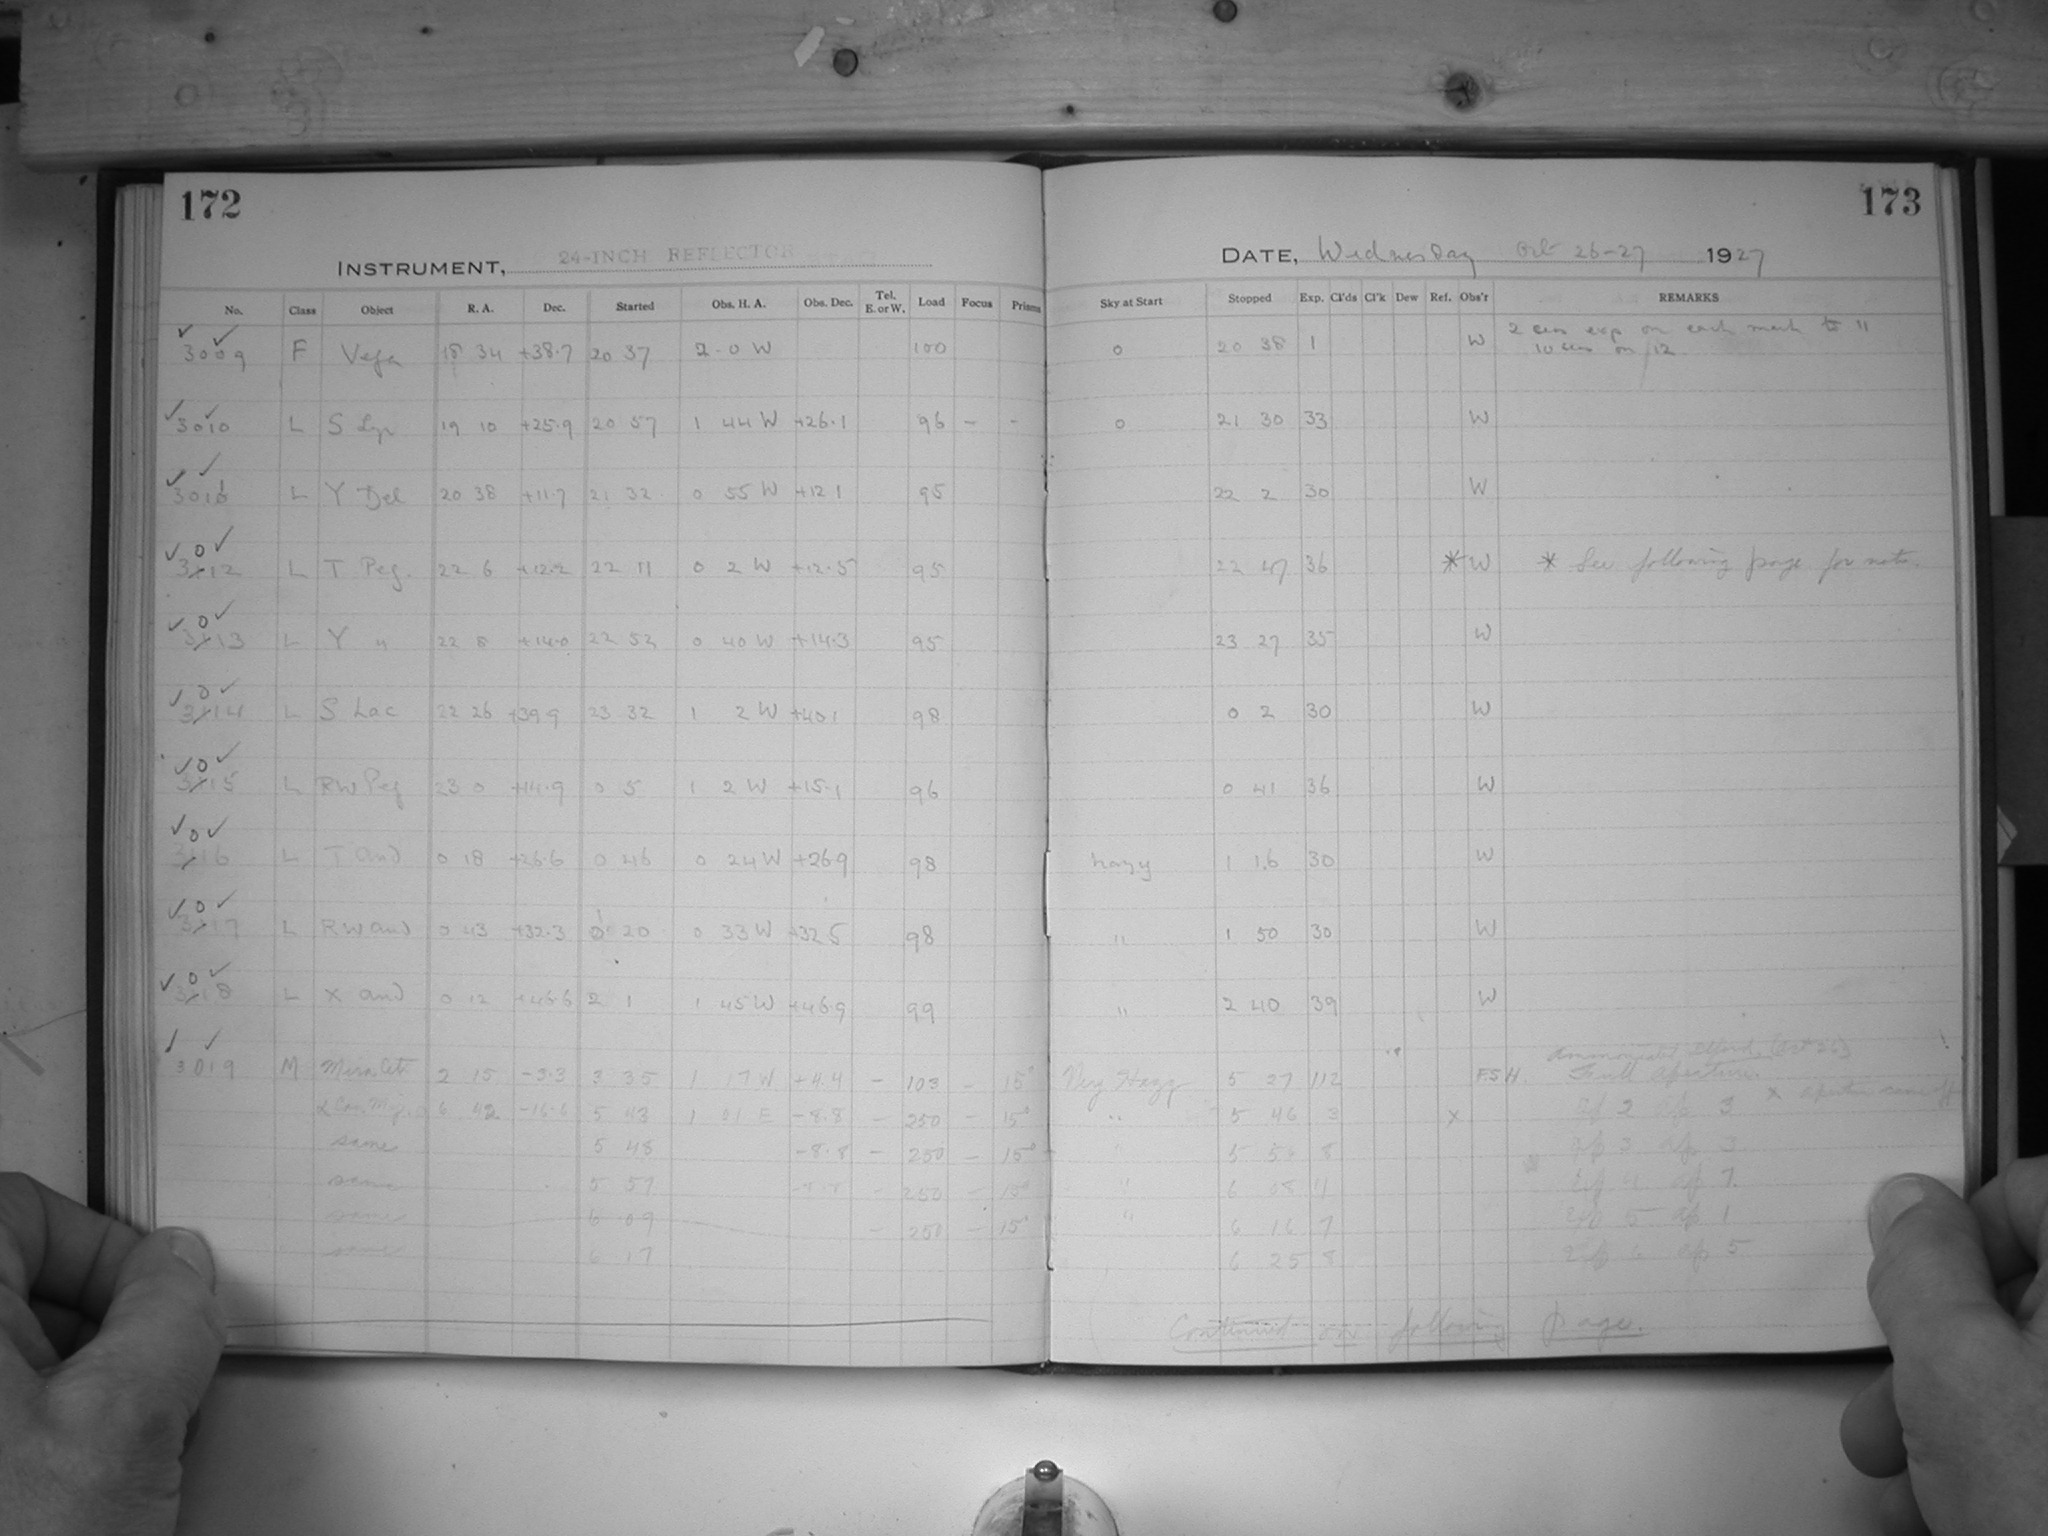 172
173
INSTRUMENT, 24-INCH REFLECTOR
DATE, Wednesday Oct 26-27 1927
No. Class Object R. A. Dec. Started Obs. H. A. Obs. Dec. Tel. E. or W. Load Focus Prisms Sky at Start Stopped Exp. Cl'ds Cl'k Dew Ref. Obs'r REMARKS
3009 F Vega 18 34 +38.7 20 37 2 0 W 100 0 20 38 1 W 2 sec exp on each mark to 11
10 sec on 12
3010 L S Lyr 19 10 +25.9 20 57 1 44 W +26.1 96 - - 0 21 30 33 W
L Y Del 20 38 +11.7 21 32 0 55 W +12.1 95 22 2 30 W
3012 L T Peg. 22 6 +12.2 22 11 0 2 W +12.5 95 22 47 36 * W * See following page for note.
3013 L Y " 22 8 +14.0 22 52 0 40 W +14.3 95 23 27 35 W
3014 L S Lac 22 26 +39.9 23 32 1 2 W +40.1 98 0 2 30 W
3015 L RW Peg 23 0 +14.9 0 5 1 2 W +15.1 96 0 41 36 W
3016 L T And 0 18 +26.6 0 46 0 24 W +26.9 98 hazy 1 16 30 W
3017 L RW And 0 43 +32.3 1 20 0 33 W +32.5 98 " 1 50 30 W
3018 L X And 0 12 +46.6 2 1 1 45 W +46.9 99 " 2 40 39 W
3019 M Mira Ceti 2 15 -3.3 3 35 1 17 W +4.4 - 103 - 15° Very Hazy 5 27 112 F.S.H Full aperture.
α Can. Maj. 6 42 -16.6 5 43 1 01 E -8.8 - 250 - 15° " 5 46 3 x 2 ap 3
same 5 48 -8.8 - 250 - 15° " 5 8 3 ap 3
same 5 57 - 250 - 15° " 6 08 11 ap 7
same 6 09 - 250 - 15° " 6 16 7 5 ap 1
same 6 17 6 25 8 ap 5
Continued on following page.